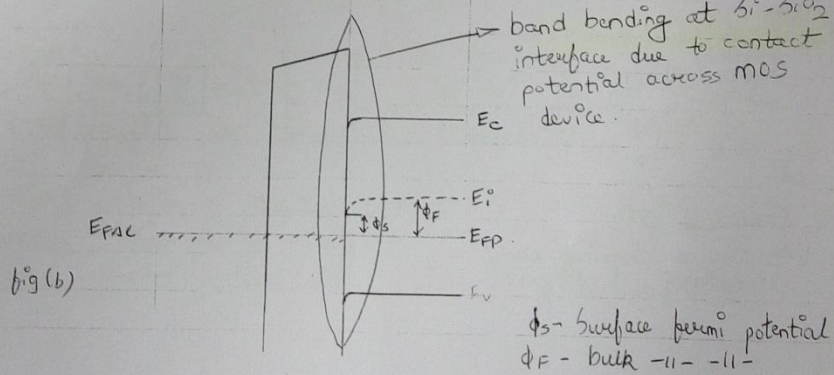 band bending at Si-SiO2
interface due to contact
potential across mos
device.
Ec
Ei
ϕF
ϕs
EFAL
EFP.
Ev
fig(b)
ϕs- Surface fermi potential
ϕF - bulk -11- -11-